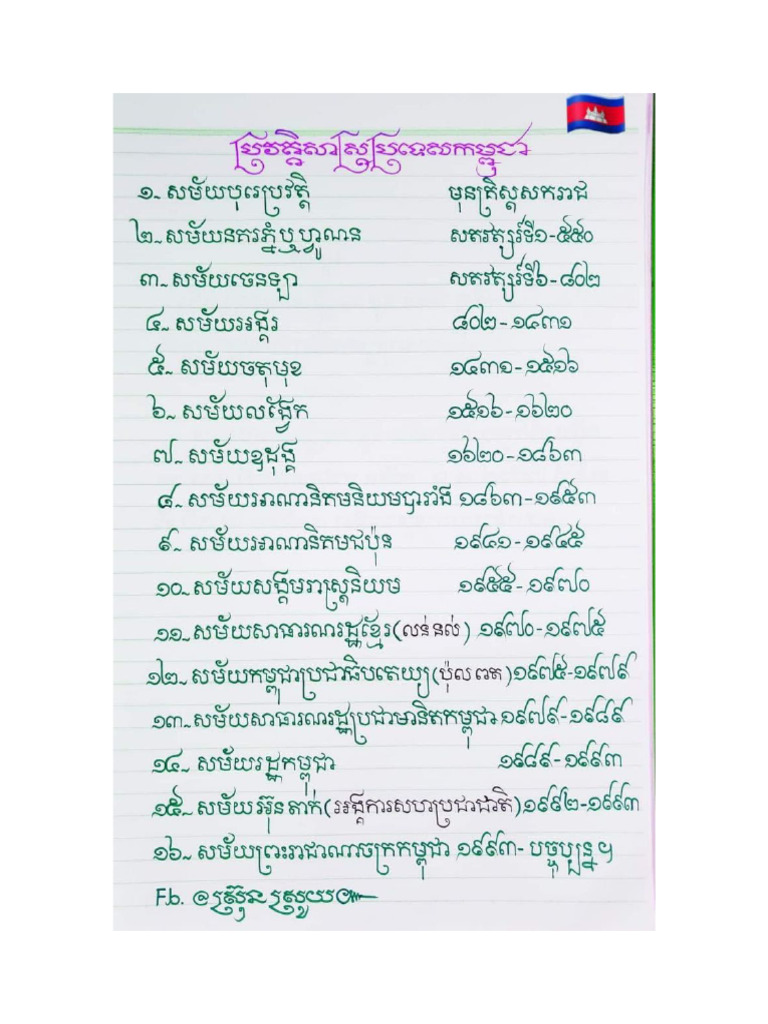 ប្រវត្តិសាស្ត្រប្រទេសកម្ពុជា
១~ សម័យបុរេប្រវត្តិ មុនគ្រិស្តសករាជ
២~ សម័យនគរភ្នំឬហ្វូណន សតវត្សរ៍ទី១-៥៥០
៣~ សម័យចេនឡា សតវត្សរ៍ទី៦-៨០២
៤~ សម័យអង្គរ ៨០២-១៤៣១
៥~ សម័យចតុមុខ ១៤៣១-១៥១៦
៦~ សម័យលង្វែក ១៥១៦-១៦២០
៧~ សម័យឧដុង្គ ១៦២០-១៨៦៣
៨~ សម័យអាណានិគមនិយមបារាំង ១៨៦៣-១៩៥៣
៩~ សម័យអាណានិគមជប៉ុន ១៩៤១-១៩៤៥
១០~ សម័យសង្គមរាស្ត្រនិយម ១៩៥៥-១៩៧០
១១~ សម័យសាធារណរដ្ឋខ្មែរ(លន់នល់) ១៩៧០-១៩៧៥
១២~ សម័យកម្ពុជាប្រជាធិបតេយ្យ(ប៉ុលពត)១៩៧៥-១៩៧៩
១៣~ សម័យសាធារណរដ្ឋប្រជាមានិតកម្ពុជា១៩៧៩-១៩៨៩
១៤~ សម័យរដ្ឋកម្ពុជា ១៩៨៩-១៩៩៣
១៥~ សម័យអ៊ុនតាក់(អង្គការសហប្រជាជាតិ)១៩៩២-១៩៩៣
១៦~ សម័យព្រះរាជាណាចក្រកម្ពុជា ១៩៩៣- បច្ចុប្បន្ន។
F.b. @ស្រ៊ុន ស្រួយ